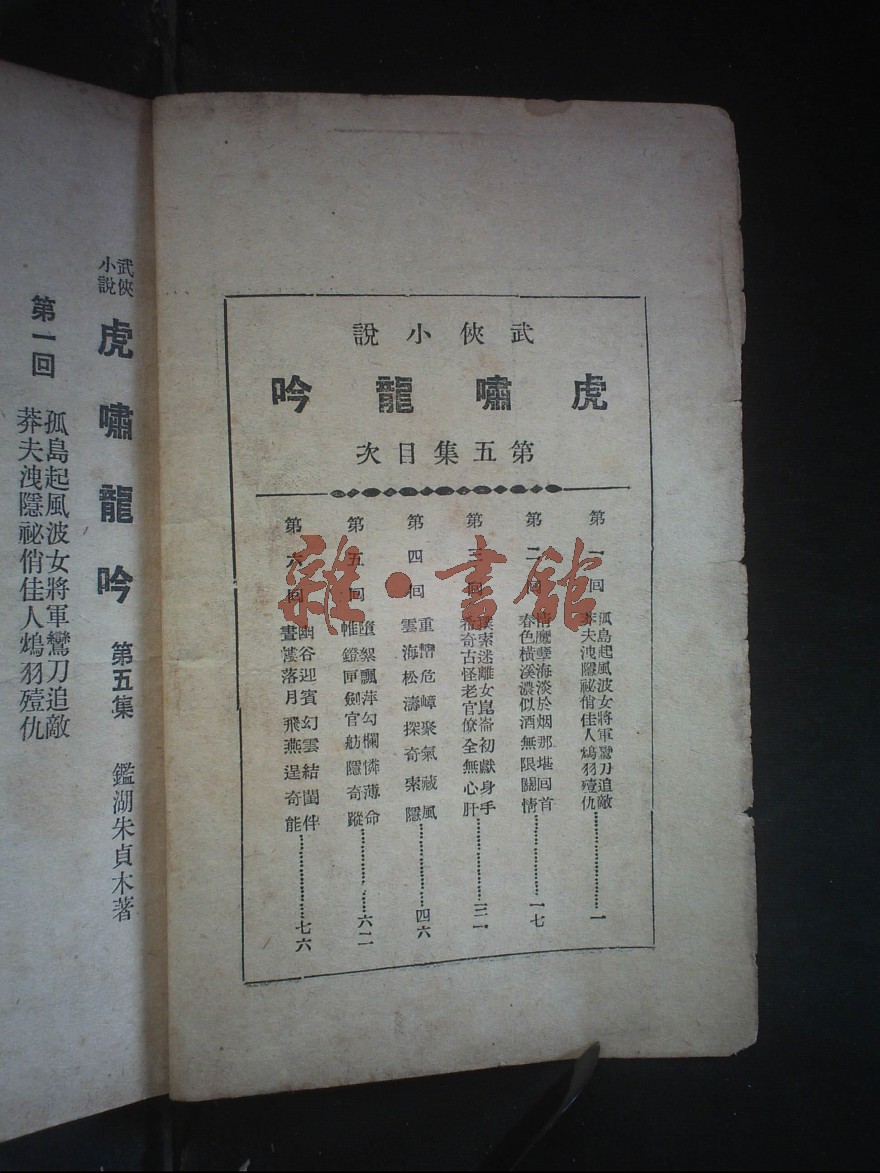 武俠小說
虎嘯龍吟
第五集目次
第一回
孤島起風波女將軍鸞刀追敵
莽夫洩隱祕俏佳人鴆羽殪仇
一
第二回
魔孽海淡於烟那堪回首
春色橫溪濃似酒無限關情
一七
第三回
索迷離女崑崙初獻身手
希奇古怪老官僚全無心肝
三一
第四回
重巒危嶂聚氣藏風
雲海松濤探奇索隱
四六
第五回
墮絮飄萍勾欄憐薄命
帷鐙匣劍官舫隱奇蹤
六二
第六回
幽谷迎賓幻雲結閨伴
畫簷落月飛燕逞奇能
七六
雜·書館
武俠小說
虎嘯龍吟 第五集 鑑湖朱貞木著
第一回
孤島起風波女將軍鸞刀追敵
莽夫洩隱祕俏佳人鴆羽殪仇